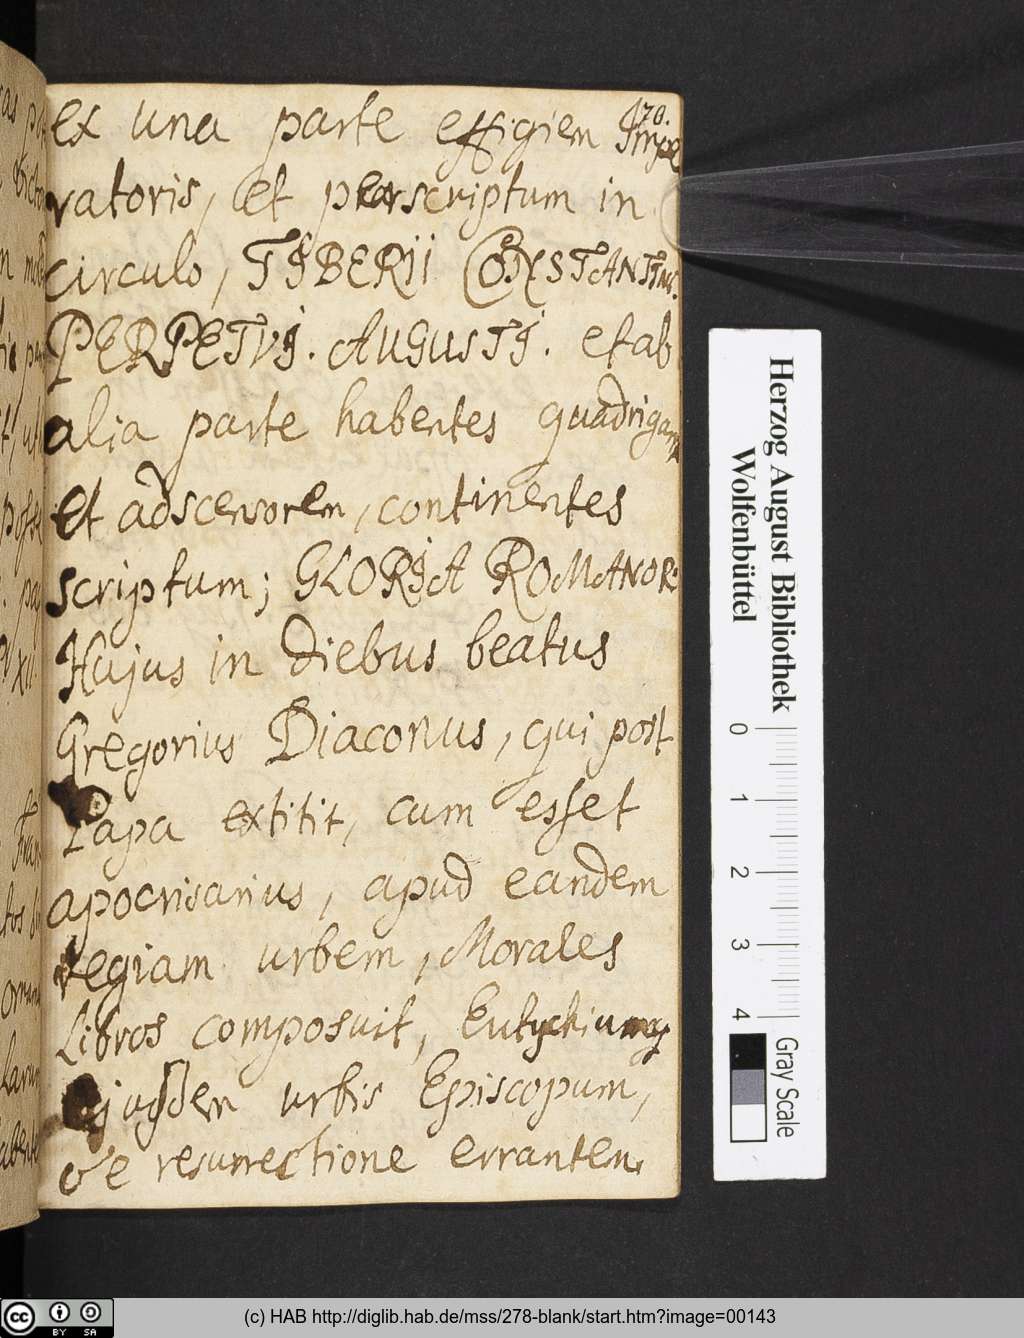 70.
ex una parte effigiem Impe
ratoris, et perscriptum in
circulo, TIBERII CONSTANTINI.
PERPETVI. AUGUSTI. et ab
alia parte habentes quadrigam
et adscensorem, continentes
scriptum; GLORIA ROMANOR:
Hujus in diebus beatus
Gregorius Diaconus, qui post
Papa extitit, cum esset
apocrisarius, apud eandem
regiam urbem, Morales
Libros composuit, Eutychium
ejusdem urbis Episcopum,
de resurrectione errantem,
Herzog August Bibliothek
Wolfenbüttel
0 1 2 3 4
Gray Scale
cc BY SA
(c) HAB http://diglib.hab.de/mss/278-blank/start.htm?image=00143